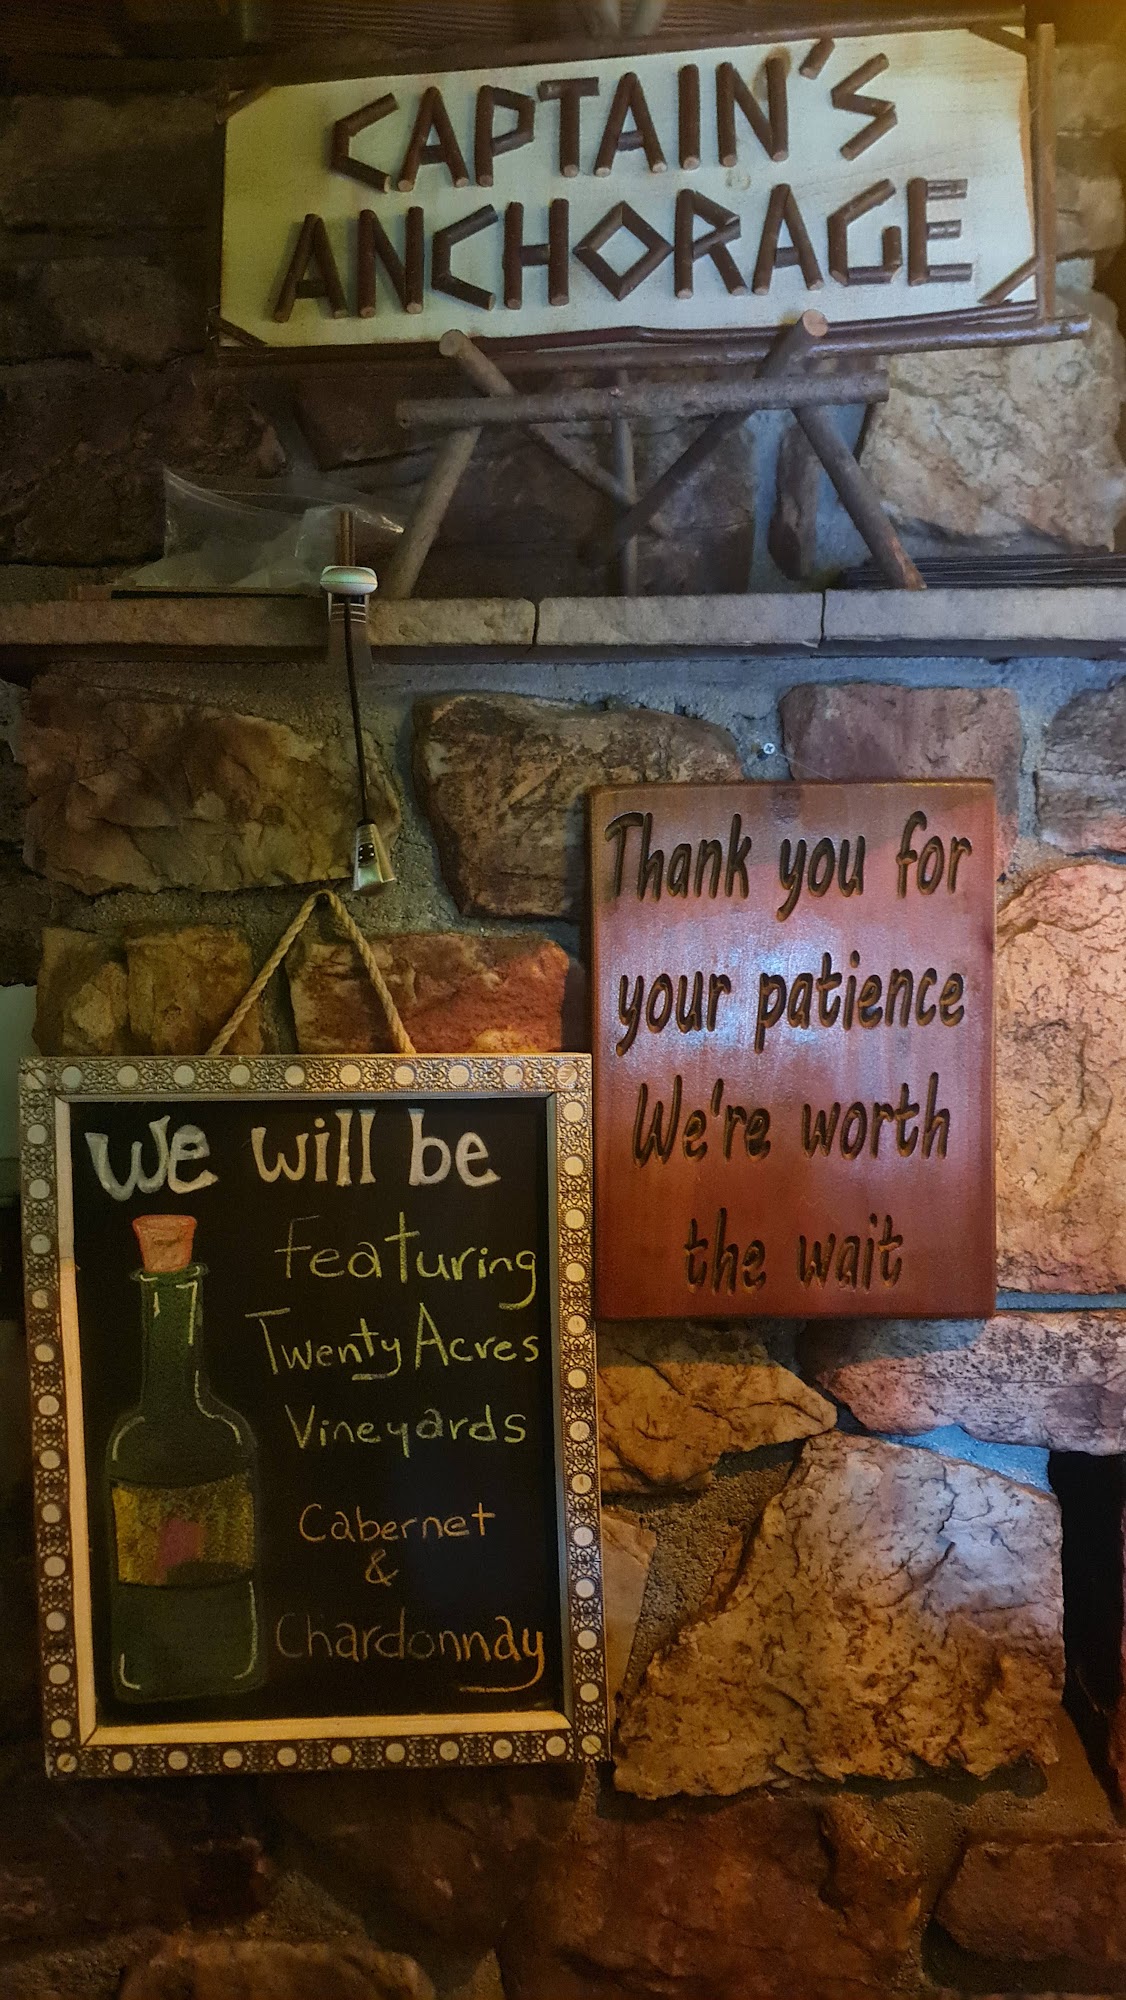 CAPTAIN'S
ANCHORAGE
Thank you for
your patience
We're worth
the wait
We will be
Featuring
Twenty Acres
Vineyards
Cabernet
&
Chardonnay